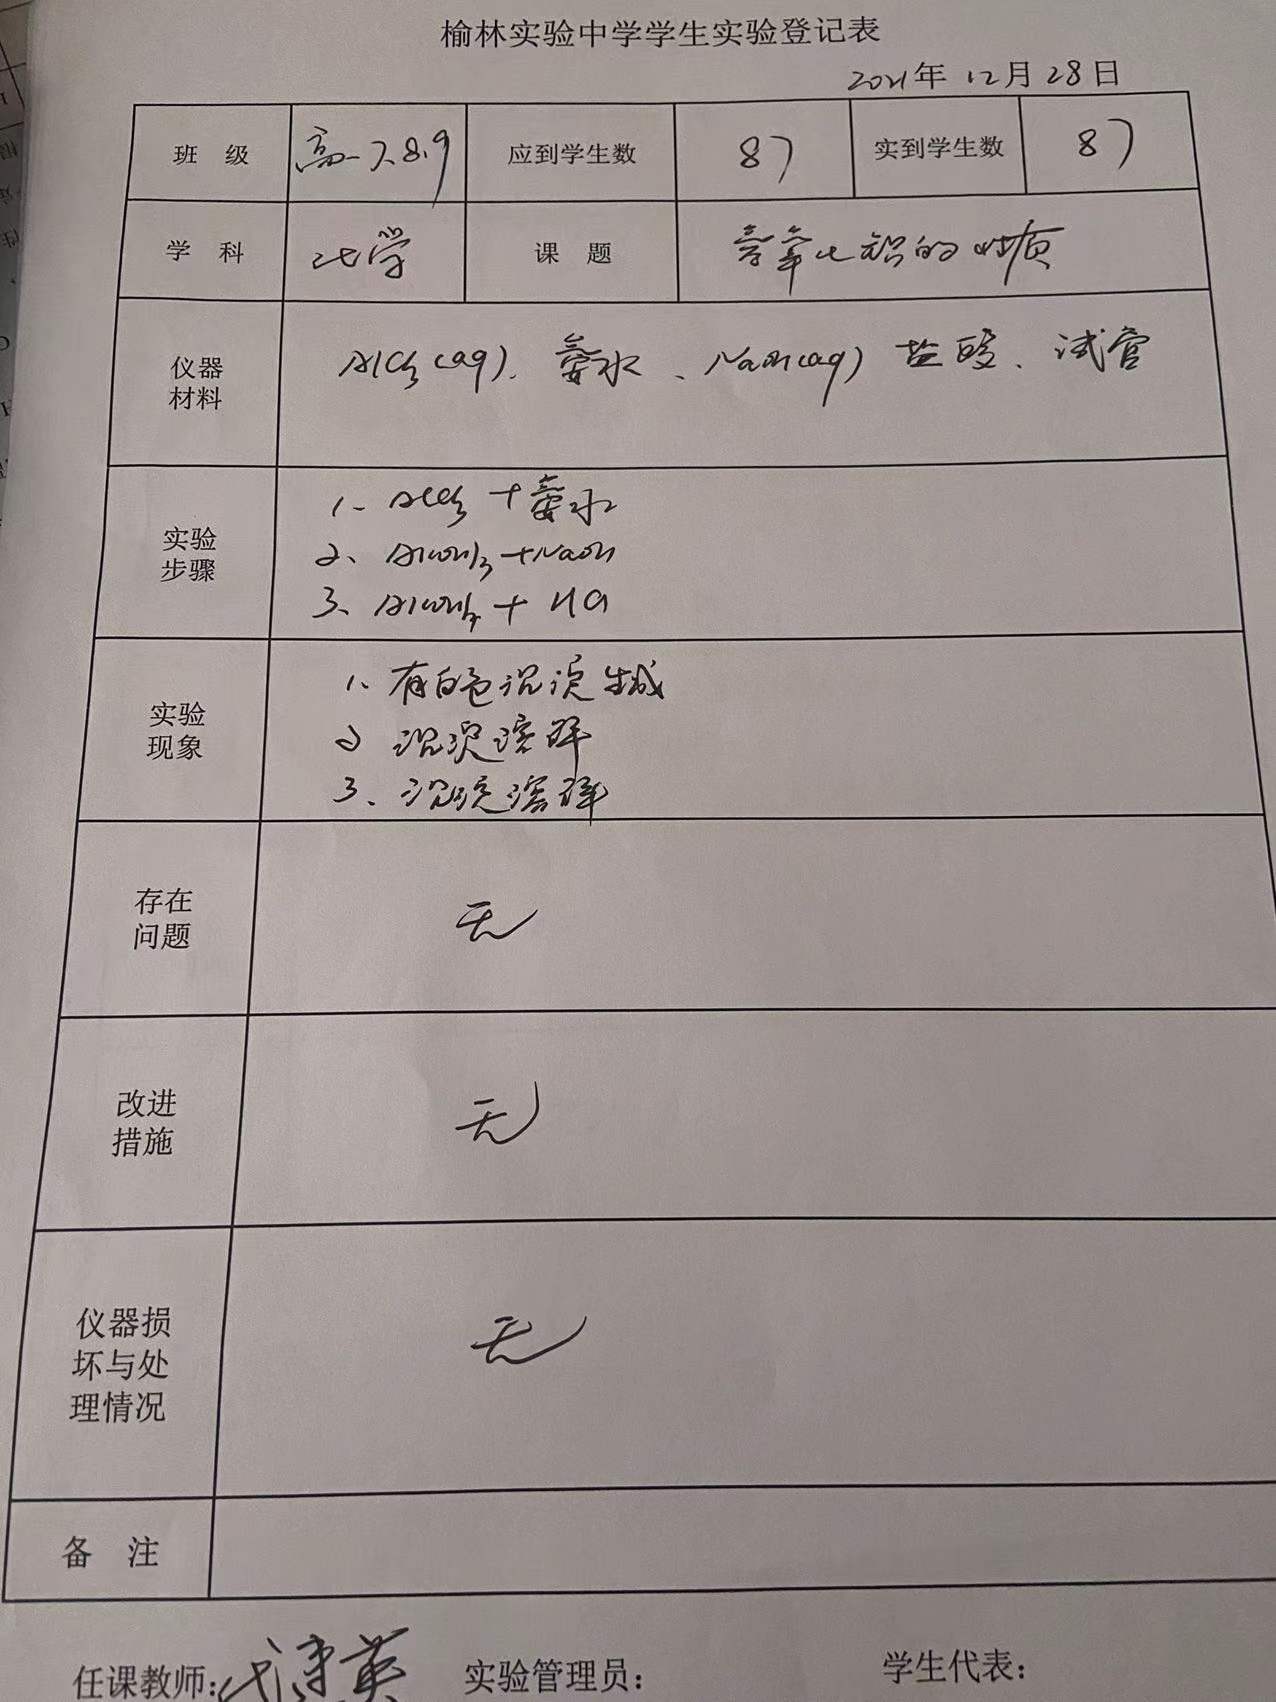 榆林实验中学学生实验登记表
2021年 12月 28日
班 级 高一7.8.9 应到学生数 87 实到学生数 87
学 科 化学 课 题 氢氧化铝的性质
仪器
材料
AlCl3(aq)、氨水、NaOH(aq) 盐酸、试管
实验
步骤
1、AlCl3 + 氨水
2、Al(OH)3 + NaOH
3、Al(OH)3 + HCl
实验
现象
1、有白色沉淀生成
2 沉淀溶解
3、沉淀溶解
存在
问题
无
改进
措施
无
仪器损
坏与处
理情况
无
备 注
任课教师: 实验管理员: 学生代表: